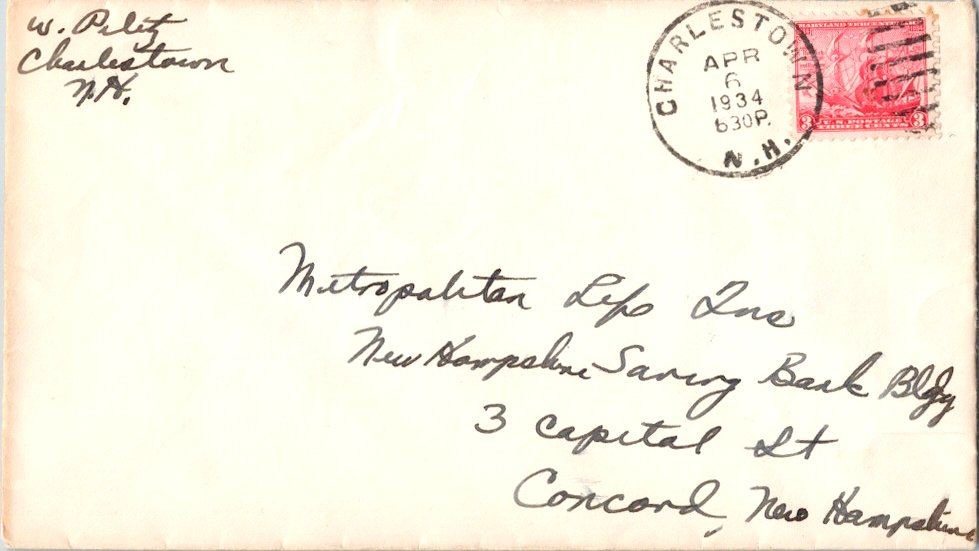 W. Peletz
Charlestown
N.H.
CHARLESTOWN
APR
6
1934
630P.
N.H.
MARYLAND TERCENTENARY
3 U.S. POSTAGE 3
THREE CENTS
Metropolitan Life Ins
New Hampshire Saving Bank Bldg
3 Capital St
Concord, New Hampshire